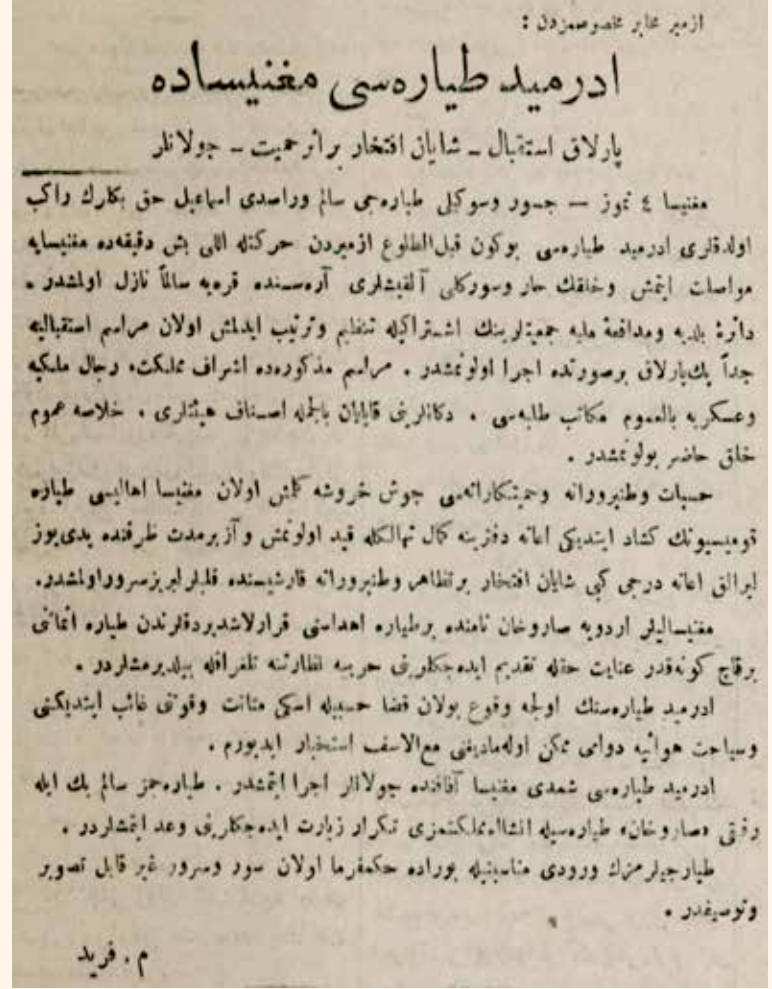 ازمیر مخابر مخصوصمزدن :
ادرمید طیاره‌سی مغنیساده
پارلاق استقبال ـ شایان افتخار بر اثر حمیت ـ جولانلر
مغنیسا ٤ تموز — جسور وسوکیلی طیاره‌جی سالم وراصدی اسماعیل حقی بکلرك راکب
اولدقلری ادرمید طیاره‌سی بوکون قبل‌الطلوع ازمیردن حرکتله اللی بش دقیقه‌ده مغنیسایه
مواصلت ایتمش وخلقك حار وسورکلی آلقیشلری آره‌سنده قربه سالماً نازل اولمشدر .
دائرهٔ بلدیه ومدافعهٔ ملیه جمعیتلرینك اشتراکیله تنظیم وترتیب ایدلمش اولان مراسم استقبالیه
جداً پك‌پارلاق برصورتده اجرا اولونمشدر . مراسم مذکوره‌ده اشراف مملکت، رجال ملکیه
وعسکریه بالعموم مکاتب طلبه‌سی . دکانلرینی قاپایان بالجمله اصناف هیئتلری . خلاصه عموم
خلق حاضر بولونمشدر .
حسیات وطنپرورانه وحمیتکارانه‌سی جوش خروشه کلمش اولان مغنیسا اهالیسی طیاره
قومیسیونك کشاد ایتدیکی اعانه دفترینه کمال تهالکله قید اولونمش و آز برمدت ظرفنده یدی‌یوز
لیرالق اعانه درجی کبی شایان افتخار برتظاهر وطنپرورانه قارشیسنده قلبلر لبریزسرور اولمشدر.
مغنیسالیلر اردویه صاروخان نامنه برطیاره اهداسنی قرارلاشدیردقلرندن طیاره اثماننی
برقاچ کونه‌قدر عنایت حقله تقدیم ایده‌جکلرینی حربیه نظارتنه تلغرافله بیلدیرمشلردر .
ادرمید طیاره‌سنك اولجه وقوع بولان قضا حسبیله اسکی متانت وقوتنی غائب ایتدیکنی
وسیاحت هوائیه دوامی ممکن اوله‌مادیغنی مع‌الاسف استخبار ایدیورم .
ادرمید طیاره‌سی شمدی مغنیسا آفاقنده جولانلر اجرا ایتمشدر . طیاره‌جمز سالم بك ایله
رفیقی «صاروخان» طیاره‌سیله انشاالله مملکتمزی تکرار زیارت ایده‌جکلرینی وعد ایتمشلردر .
طیارجیلرمزك ورودی مناسبتیله بوراده حکمفرما اولان سور وسرور غیر قابل تصویر
وتوصیفدر .
م . فرید